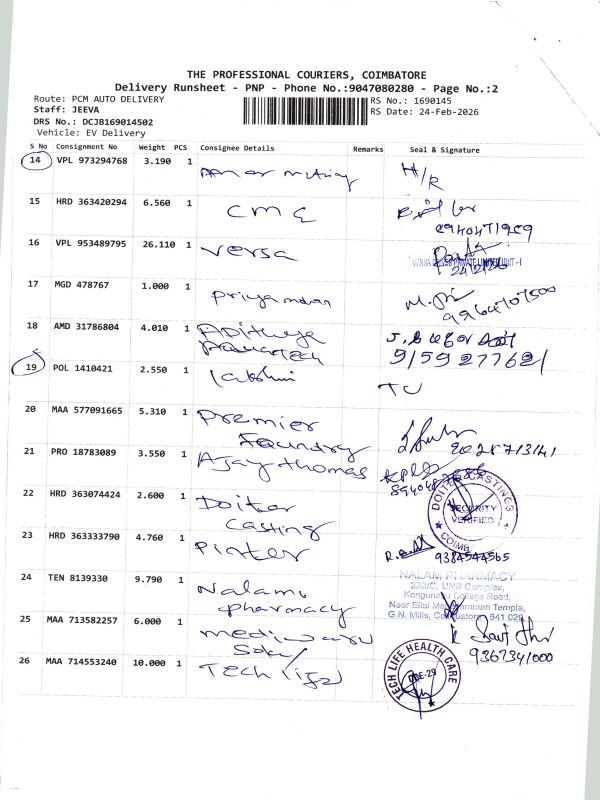 THE PROFESSIONAL COURIERS, COIMBATORE
Delivery Runsheet - PNP - Phone No.:9047080280 - Page No.:2
Route: PCM AUTO DELIVERY
RS No.: 1690145
Staff: JEEVA
RS Date: 24-Feb-2026
DRS No.: DCJB169014502
Vehicle: EV Delivery
S No Consignment No Weight PCS Consignee Details Remarks Seal & Signature
14 VPL 973294768 3.190 1 H/R
15 HRD 363420294 6.560 1 CME
16 VPL 953489795 26.110 1 Versa
VERSA PRIVATE LIMITED UNIT - I
17 MGD 478767 1.000 1 Priyamdran
9964707500
18 AMD 31786804 4.010 1 Adithya
9159277621
19 POL 1410421 2.550 1 lakshmi
20 MAA 577091665 5.310 1 Premier
Foundry
21 PRO 18783089 3.550 1 Ajay thomas
22 HRD 363074424 2.600 1 Doiter
Casting
DOITER CASTINGS
SECURITY
VERIFIED
23 HRD 363333790 4.760 1 Pinter
9384544565
24 TEN 8139330 9.790 1 Nalam
pharmacy
NALAM PHARMACY
223/C, UNS Complex,
Kongunadu College Road,
Near Ellai Temple,
G.N. Mills, Coimbatore 641 029
25 MAA 713582257 6.000 1
9367341000
26 MAA 714553240 10.000 1 Tech
TECH LIFE HEALTH CARE
CBE-29